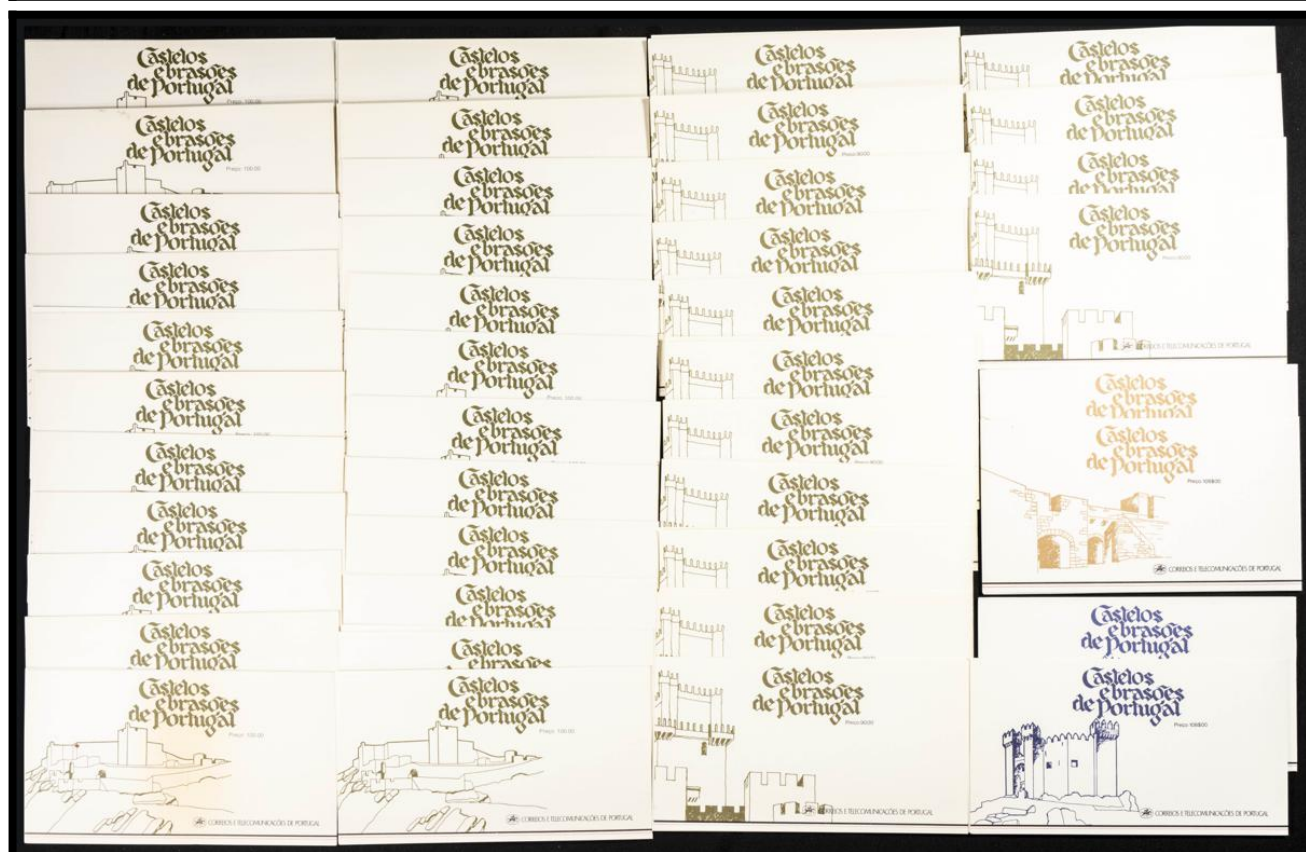 Castelos
e brasões
de Portugal
Preço: 100.00
Castelos
e brasões
de Portugal
Preço: 100.00
Castelos
e brasões
de Portugal
Castelos
e brasões
de Portugal
Castelos
e brasões
de Portugal
Castelos
e brasões
de Portugal
Castelos
e brasões
de Portugal
Castelos
e brasões
de Portugal
Castelos
e brasões
de Portugal
Castelos
e brasões
de Portugal
Castelos
e brasões
de Portugal
Preço: 100.00
CORREIOS E TELECOMUNICAÇÕES DE PORTUGAL
Castelos
e brasões
de Portugal
Castelos
e brasões
de Portugal
Castelos
e brasões
de Portugal
Castelos
e brasões
de Portugal
Castelos
e brasões
de Portugal
Castelos
e brasões
de Portugal
Preço: 100.00
Castelos
e brasões
de Portugal
Castelos
e brasões
de Portugal
Castelos
e brasões
de Portugal
Castelos
e brasões
de Portugal
Castelos
e brasões
Castelos
e brasões
de Portugal
Preço: 100.00
CORREIOS E TELECOMUNICAÇÕES DE PORTUGAL
Castelos
e brasões
de Portugal
Castelos
e brasões
de Portugal
Preço: 90.00
Castelos
e brasões
de Portugal
Castelos
e brasões
de Portugal
Castelos
e brasões
de Portugal
Castelos
e brasões
de Portugal
Castelos
e brasões
de Portugal
Castelos
e brasões
de Portugal
Castelos
e brasões
de Portugal
Castelos
e brasões
de Portugal
Castelos
e brasões
de Portugal
Preço: 90.00
CORREIOS E TELECOMUNICAÇÕES DE PORTUGAL
Castelos
e brasões
de Portugal
Castelos
e brasões
de Portugal
Castelos
e brasões
de Portugal
Castelos
e brasões
de Portugal
Preço: 90.00
CORREIOS E TELECOMUNICAÇÕES DE PORTUGAL
Castelos
e brasões
de Portugal
Castelos
e brasões
de Portugal
Preço: 108$00
CORREIOS E TELECOMUNICAÇÕES DE PORTUGAL
Castelos
e brasões
de Portugal
Castelos
e brasões
de Portugal
Preço: 108$00
CORREIOS E TELECOMUNICAÇÕES DE PORTUGAL